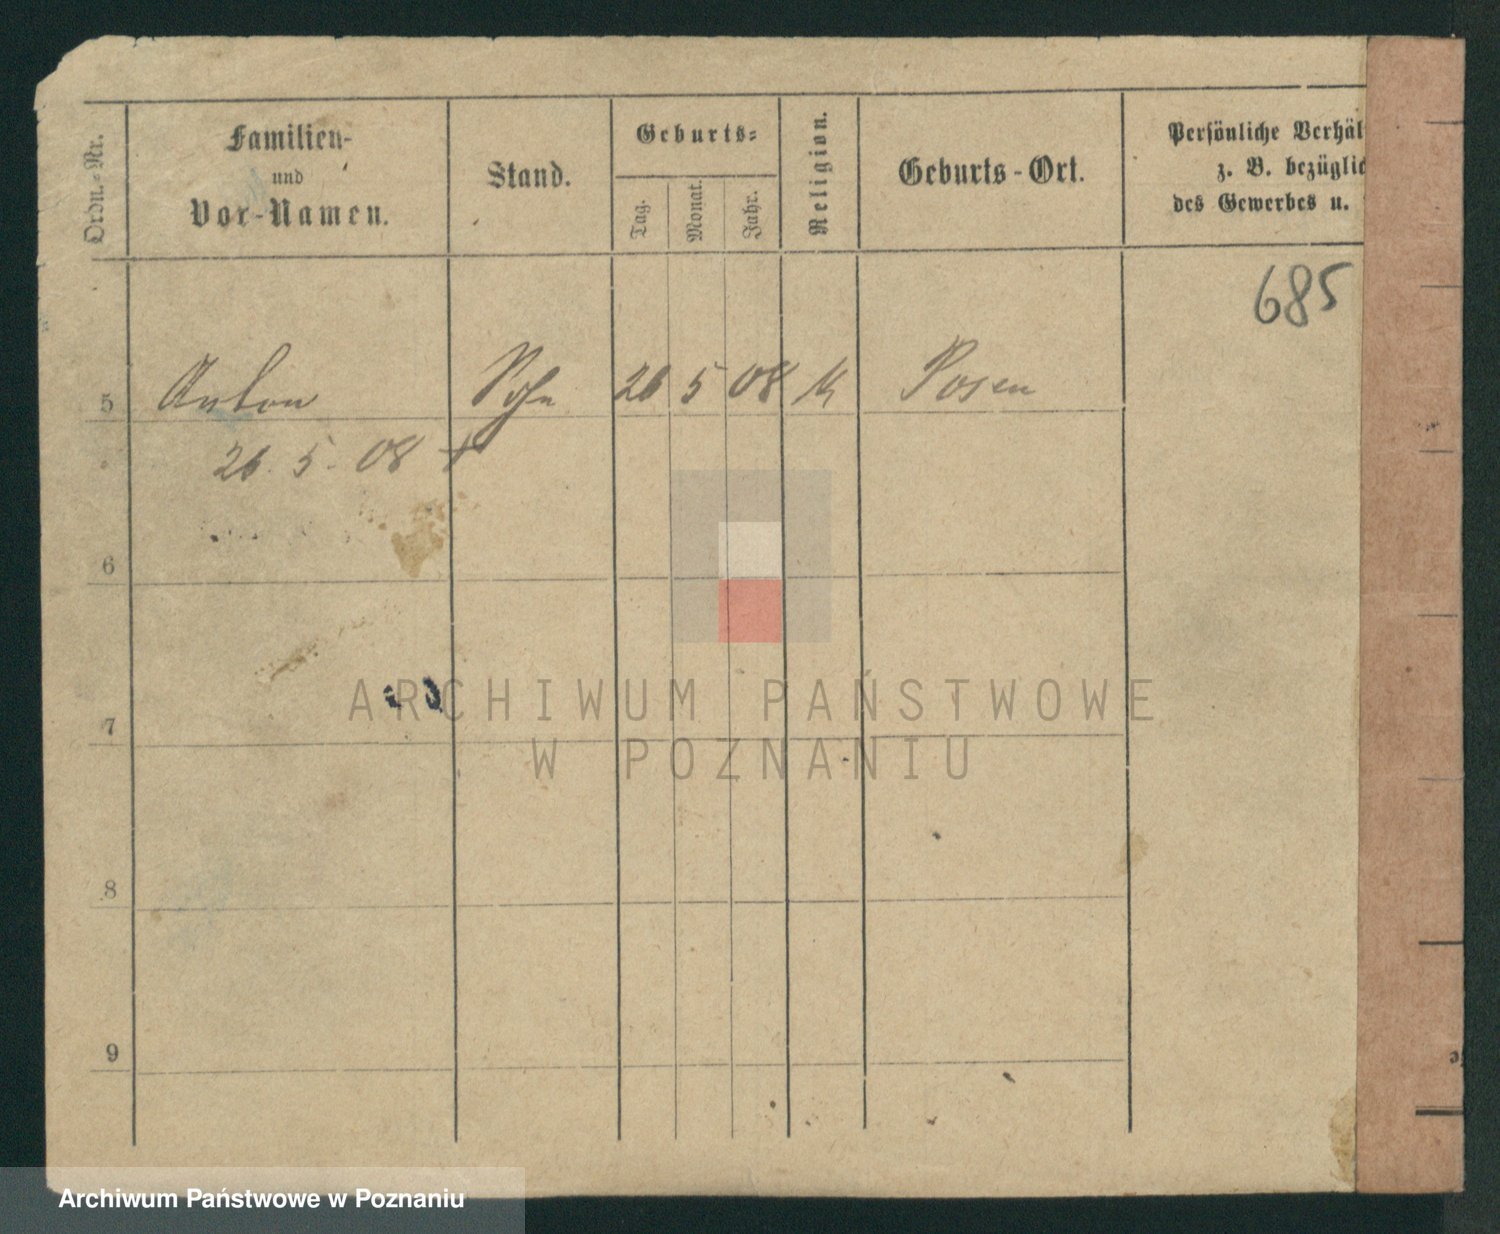 Ordn.-Nr.
Familien-
und
Vor-Namen.
Stand.
Geburts-
Tag.
Monat.
Jahr.
Religion.
Geburts-Ort.
Persönliche Verhäl
z. B. bezüglic
des Gewerbes u.
685
5 Anton Sohn 26 5 08 k Posen
26. 5. 08 +
6
7
8
9
ARCHIWUM PAŃSTWOWE
W POZNANIU
Archiwum Państwowe w Poznaniu